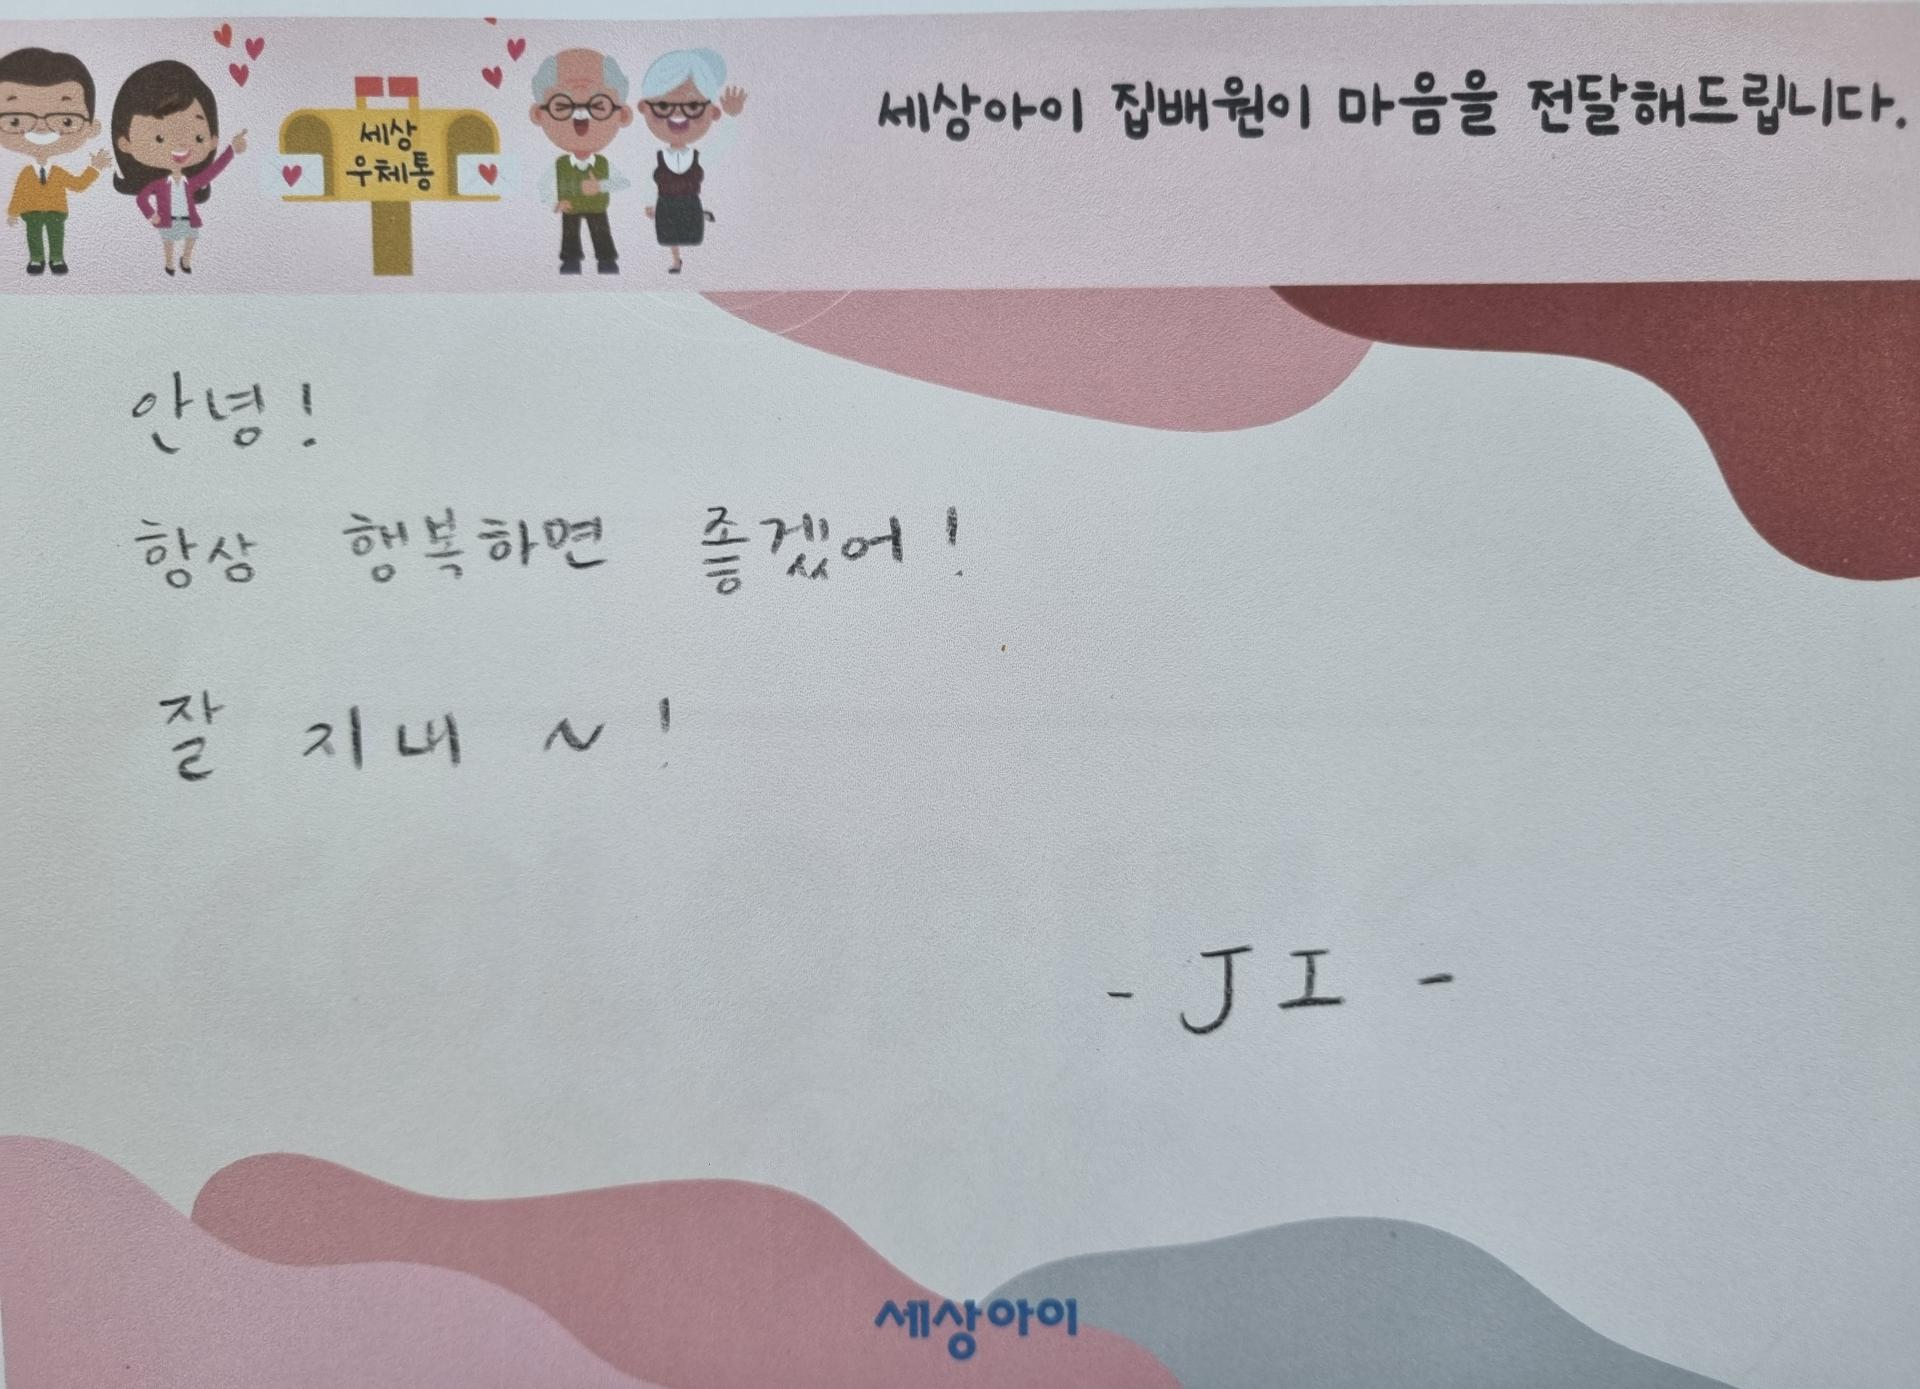 세상아이 집배원이 마음을 전달해드립니다.
세상
우체통
안녕!
항상 행복하면 좋겠어!
잘 지내 ~!
- JI -
세상아이